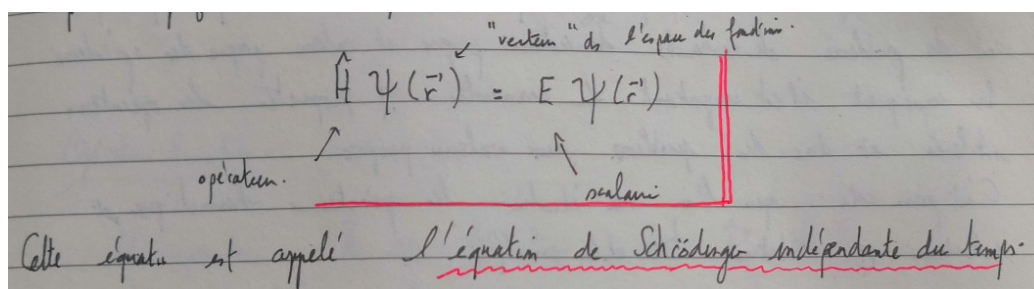 "vecteur" ds l'espace des fonctions.
Ĥ Ψ(r⃗) = E Ψ(r⃗)
opérateur.
scalaire
Cette équation est appelé l'équation de Schrödinger indépendante du temps.